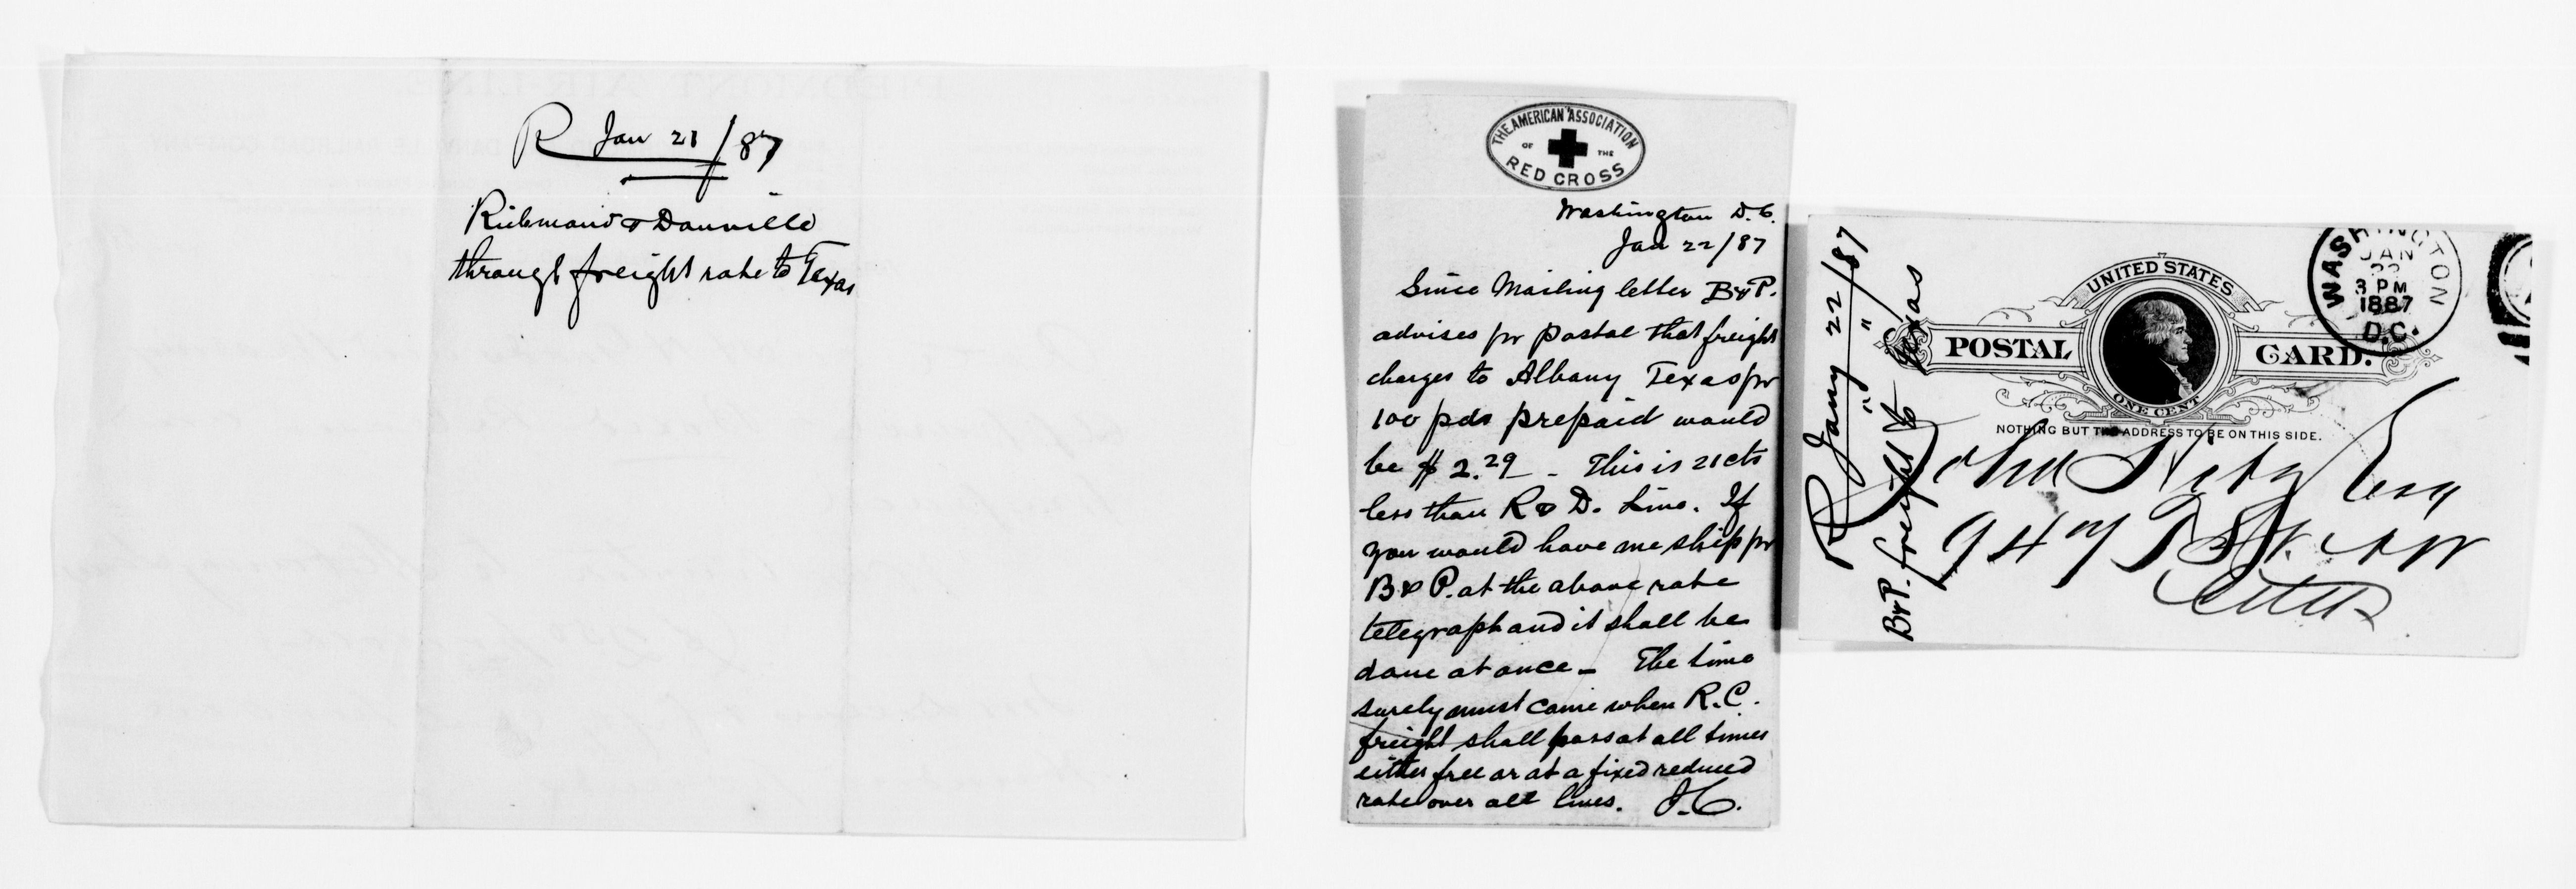 R Jan 21/87
Richmond & Danville
through freight rate to Texas
THE AMERICAN ASSOCIATION
OF THE
RED CROSS
Washington D.C.
Jan 22/87
Since Mailing letter B&P.
advises pr postal that freight
charges to Albany Texas pr
100 pds prepaid would
be $2.29 - This is 21cts
less than R & D. Line. If
you would have me ship pr
B & P. at the above rate
telegraph and it shall be
done at once - The time
surely must come when R.C.
freight shall pass at all times
either free or at a fixed reduced
rate over all lines. J.C.
R Jany 22/87
" "
B&P. freight to Texas
WASHINGTON
JAN
22
3 PM
1887
D.C.
UNITED STATES
POSTAL CARD.
ONE CENT
NOTHING BUT THE ADDRESS TO BE ON THIS SIDE.
John Hitz Esq
947 T St. NW
City